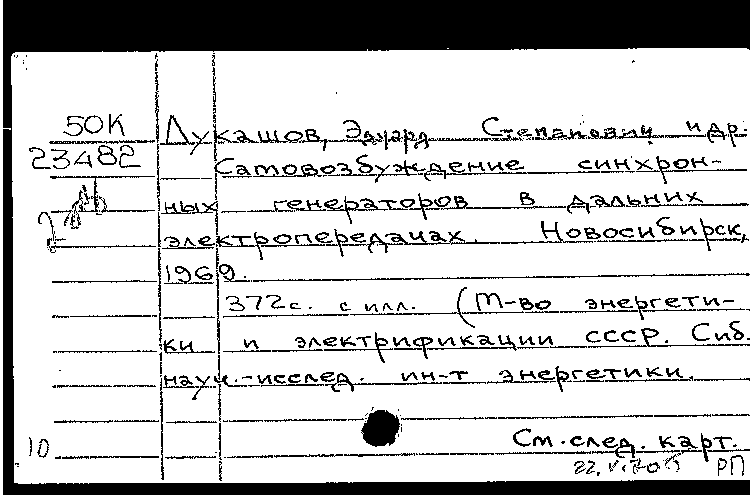 50К Лукашов, Эдуард Степанович и др.
23482 Самовозбуждение синхрон-
ных генераторов в дальних
электропередачах. Новосибирск,
1969.
372с. с илл. (М-во энергети-
ки и электрификации СССР. Сиб.
науч.-исслед. ин-т энергетики.
См. след. карт.
10
22.V.70 РП